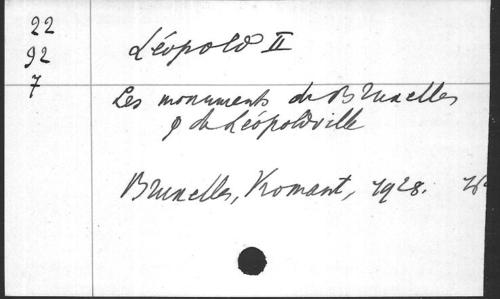 22
92
7
Léopold II
Les monuments de Bruxelles
& de Léopoldville
Bruxelles, 1928.